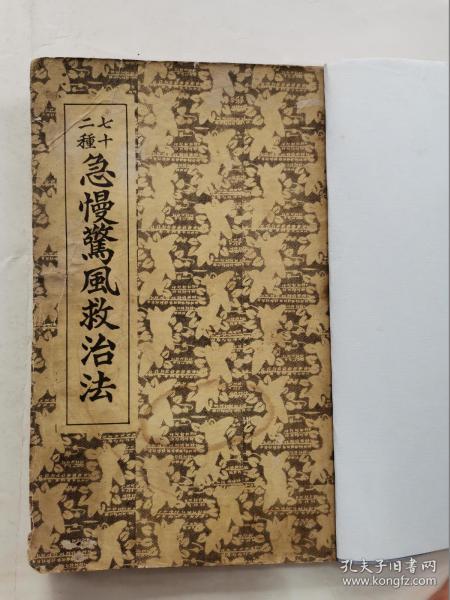 七十二種
急慢驚風救治法
孔夫子旧书网
www.kongfz.com